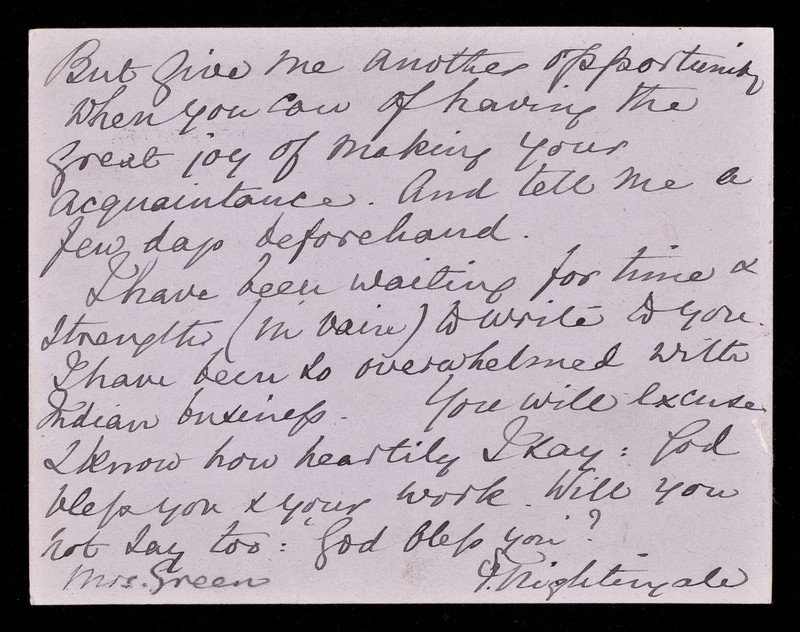 But give me another opportunity
when you can of having the
great joy of making your
acquaintance. And tell me a
few days beforehand.
I have been waiting for time &
strength (in vain) to write to you.
I have been so overwhelmed with
Indian business. You will excuse
I know how heartily I say: God
bless you & your work. Will you
not say too: "God bless you"?
Mrs. Green F. Nightingale